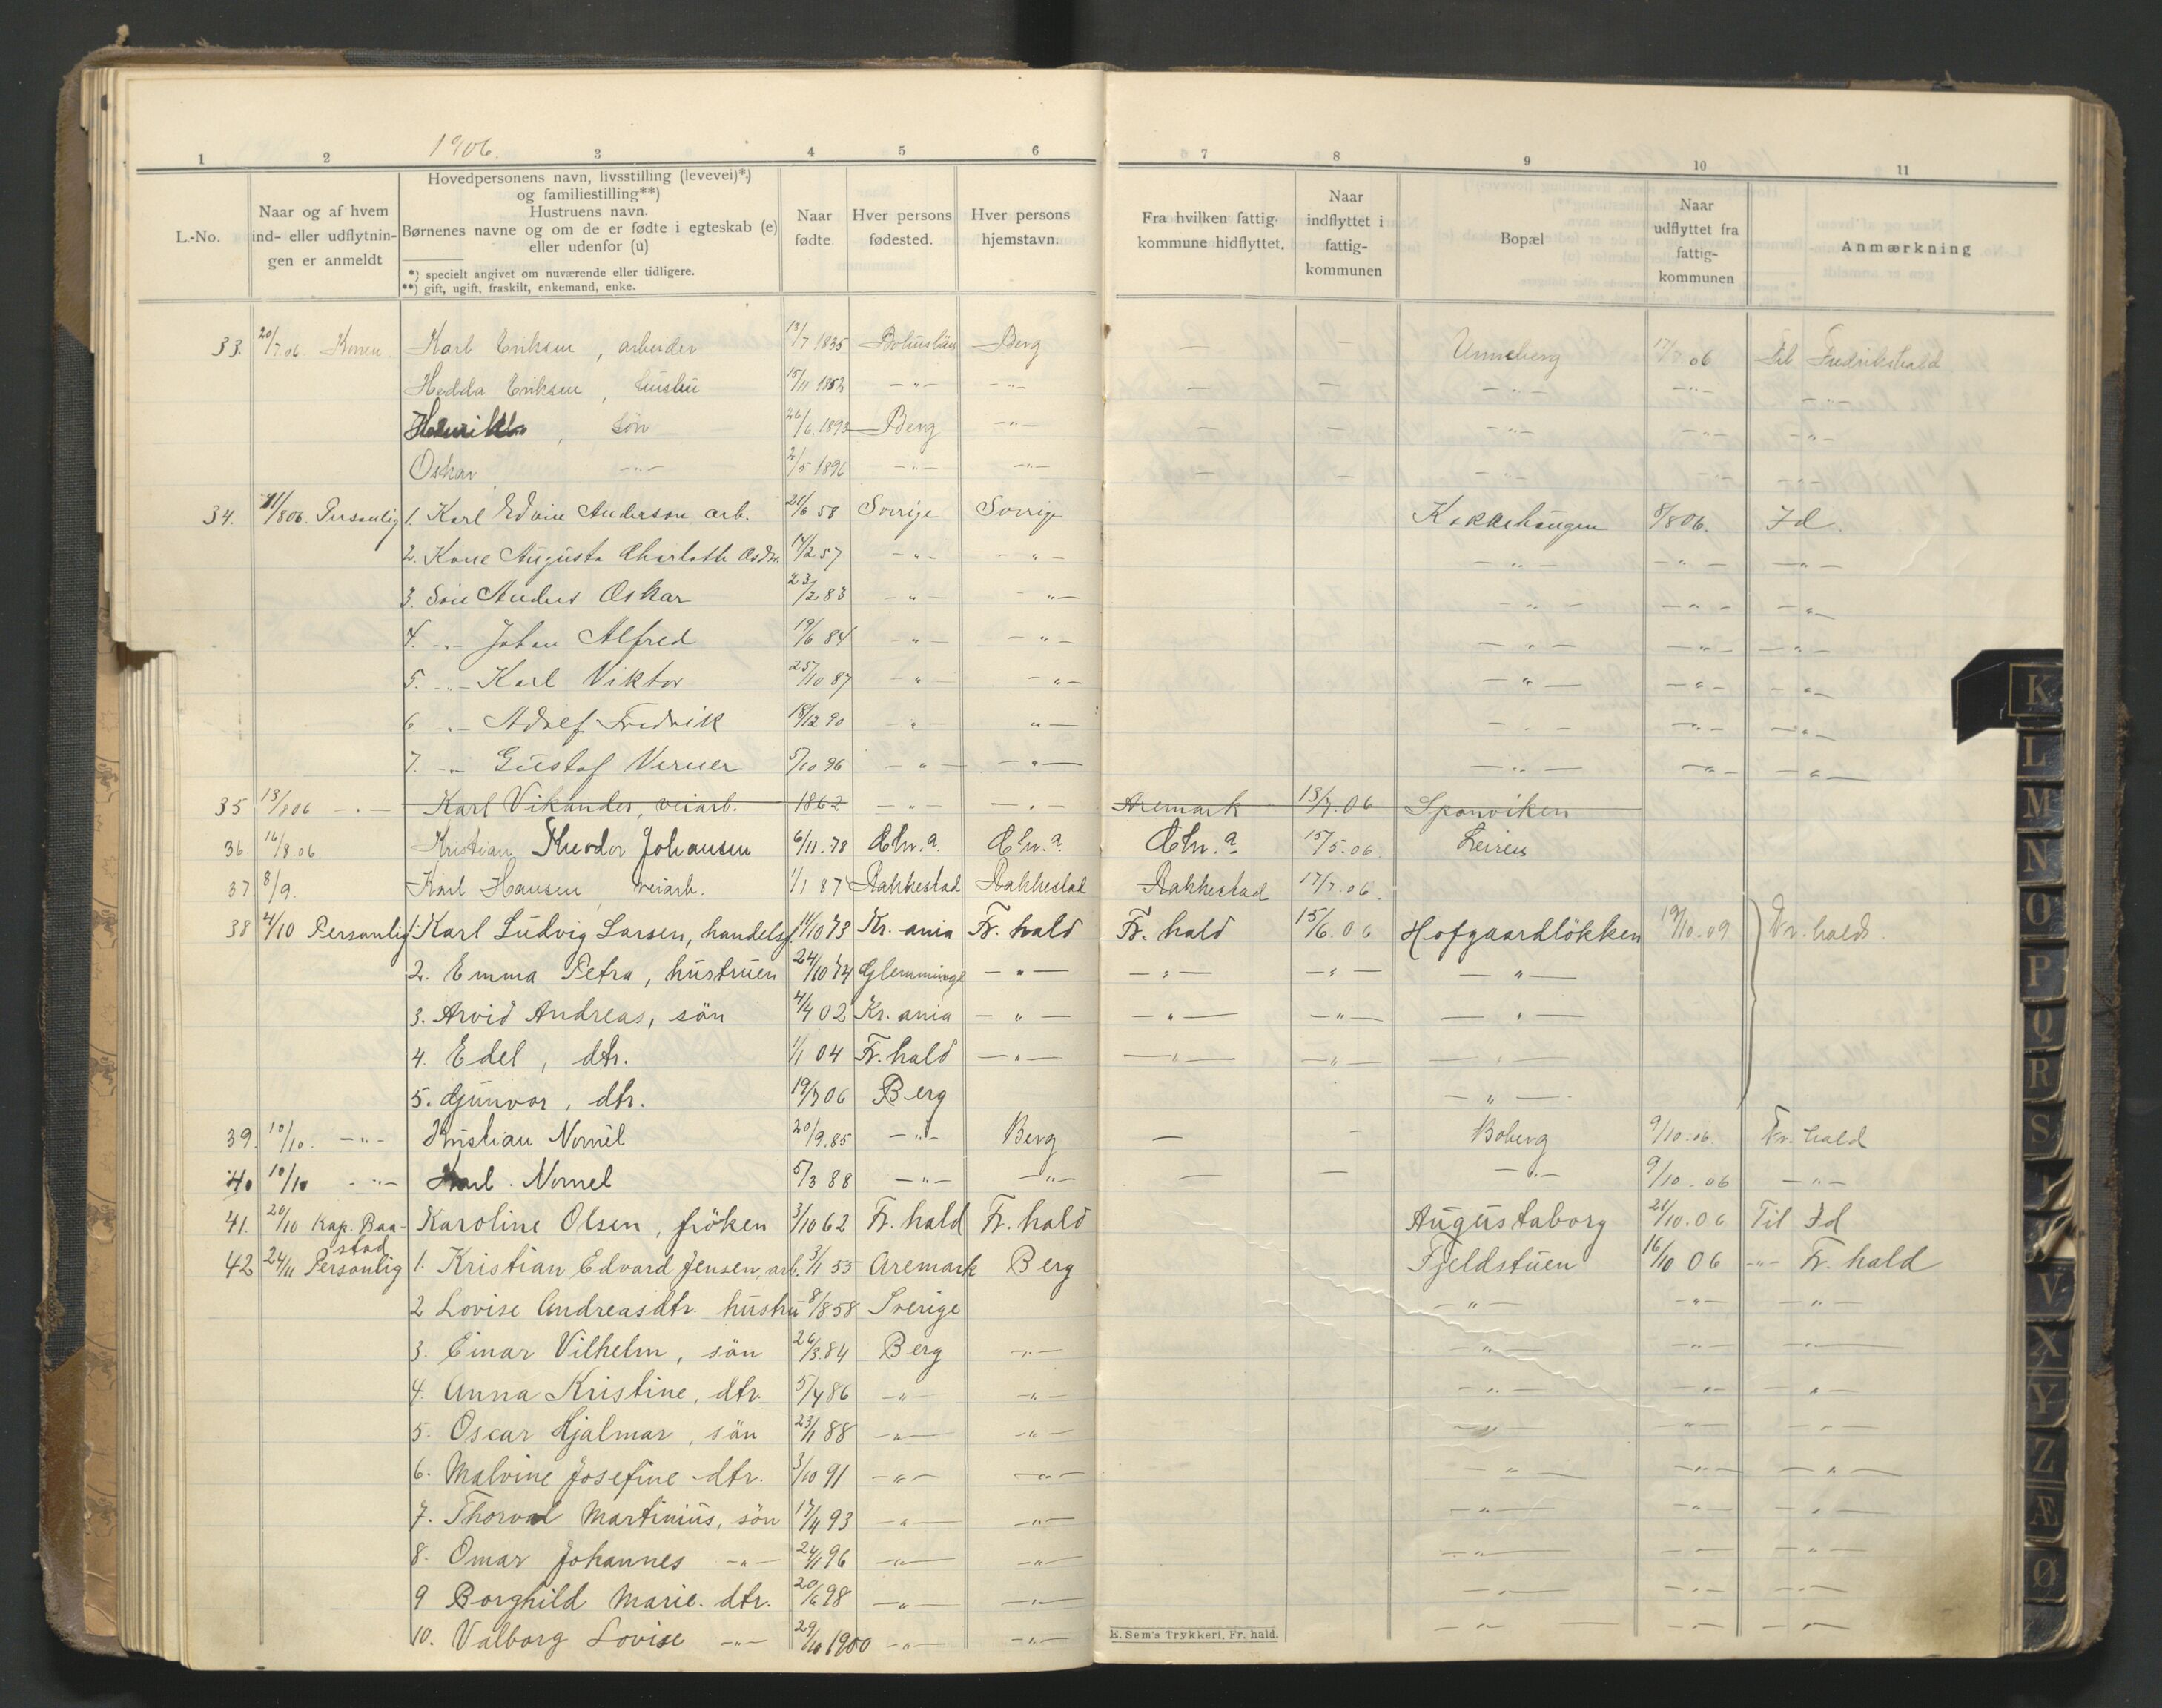 1906.
1 2 3 4 5 6 7 8 9 10 11
L.-No.
Naar og af hvem ind- eller udflytningen er anmeldt
Hovedpersonens navn, livsstilling (levevei)*)
og familiestilling**)
Hustruens navn.
Børnenes navne og om de er fødte i egteskab (e)
eller udenfor (u)
*) specielt angivet om nuværende eller tidligere.
**) gift, ugift, fraskilt, enkemand, enke.
Naar fødte.
Hver persons fødested.
Hver persons hjemstavn.
Fra hvilken fattigkommune hidflyttet.
Naar indflyttet i fattigkommunen
Bopæl
Naar udflyttet fra fattigkommunen
Anmærkning
33. 20/7.06. Konen. Karl Eriksen, arbeider 13/7 1835 Bohuslän Berg — — Unneberg 17/7 06 Til Fredrikshald
Hedda Eriksen, hustru 15/11 1852 —"— —"— — — —"— —"— —"—
Henrik, søn 26/6.1893 Berg —"— — — —"— —"— —"—
Oskar —"— 2/5 1896 —"— —"— — — —"— —"— —"—
34. 11/8 06. Personlig 1. Karl Edvin Anderson arb. 21/6 58 Sverige Sverige Kokkehaugen 8/8 06. Id.
2. Kone Augusta Charlotte 14/2 57 —"— —"— —"— —"— —"—
3. Søn Anders Oskar 23/2 83 —"— —"— —"— —"— —"—
4. —"— Johan Alfred 19/6 84 —"— —"— —"— —"— —"—
5. —"— Karl Viktor 25/10 87 —"— —"— —"— —"— —"—
6 —"— Adolf Fredrik 18/12 90 —"— —"— —"— —"— —"—
7. —"— Gustaf Verner 5/10 96 —"— —"— —"— —"— —"—
35 13/8 06 —"— Karl Vikander, veiarb. 1862 —"— —"— Aremark 13/7.06 Sponviken
36. 16/8.06. Kristian Theodor Johansen 6/11.78 Chr.a. Chr.a. Chr.a 15/5.06. Leiren
37 8/9. Karl Hansen, veiarb. 1/1 87 Rakkestad Rakkestad Rakkestad 17/7.06.
38 4/10 Personlig 1. Karl Ludvig Larsen, handelsf. 11/10 73 Kr.ania Fr.hald Fr.hald 15/6.06 Hofgaardløkken 19/10.09 Fr.hald.
2. Emma Petra, hustruen 24/10 74 Glemminge —"— —"— —"— —"—
3. Arvid Andreas, sön 4/4 02 Kr.ania —"— —"— —"— —"—
4. Edel, dtr. 1/1 04 Fr.hald —"— —"— —"— —"—
5. Gunvor, dtr. 19/7 06 Berg —"—
39. 10/10. —"— Kristian Nornel 20/9.85 —"— Berg — — Boberg 9/10.06. Fr.hald
40 10/10 —"— Karl Nornel 5/3 88 —"— —"— — — —"— 9/10.06 —"—
41. 20/10 Kap. Baastad Karoline Olsen, fröken 3/10 62 Fr.hald Fr.hald Augustaborg 21/10.06 Til Id
42 24/11 Personlig 1. Kristian Edvard Jensen, arb. 3/1 55 Aremark Berg Fjeldstuen 16/10 06 —"— Fr.hald
2 Lovise Andreasdtr. hustru 8/8.58 Sverige —"— —"— —"—
3. Einar Vilhelm, sön 26/3.84 Berg —"— —"— —"— —"—
4. Anna Kristine, dtr. 5/4 86 —"— —"— —"— —"— —"—
5. Oscar Hjalmar, sön 23/1 88 —"— —"— —"— —"— —"—
6. Malvine Josefine dtr. 3/10 91 —"— —"— —"— —"— —"—
7. Thorval Martinius, sön 17/4 93 —"— —"— —"— —"— —"—
8. Omar Johannes —"— 24/1 96 —"— —"— —"— —"— —"—
9 Borghild Marie. dtr. 20/6 98 —"— —"— —"— —"— —"—
10. Valborg Lovise —"— 29/10 1900 —"— —"— —"— —"— —"—
E. Sem's Trykkeri, Fr. hald.
K
L
M
N
O
P
Q
R
S
V
X
Y
Z
Æ
Ø